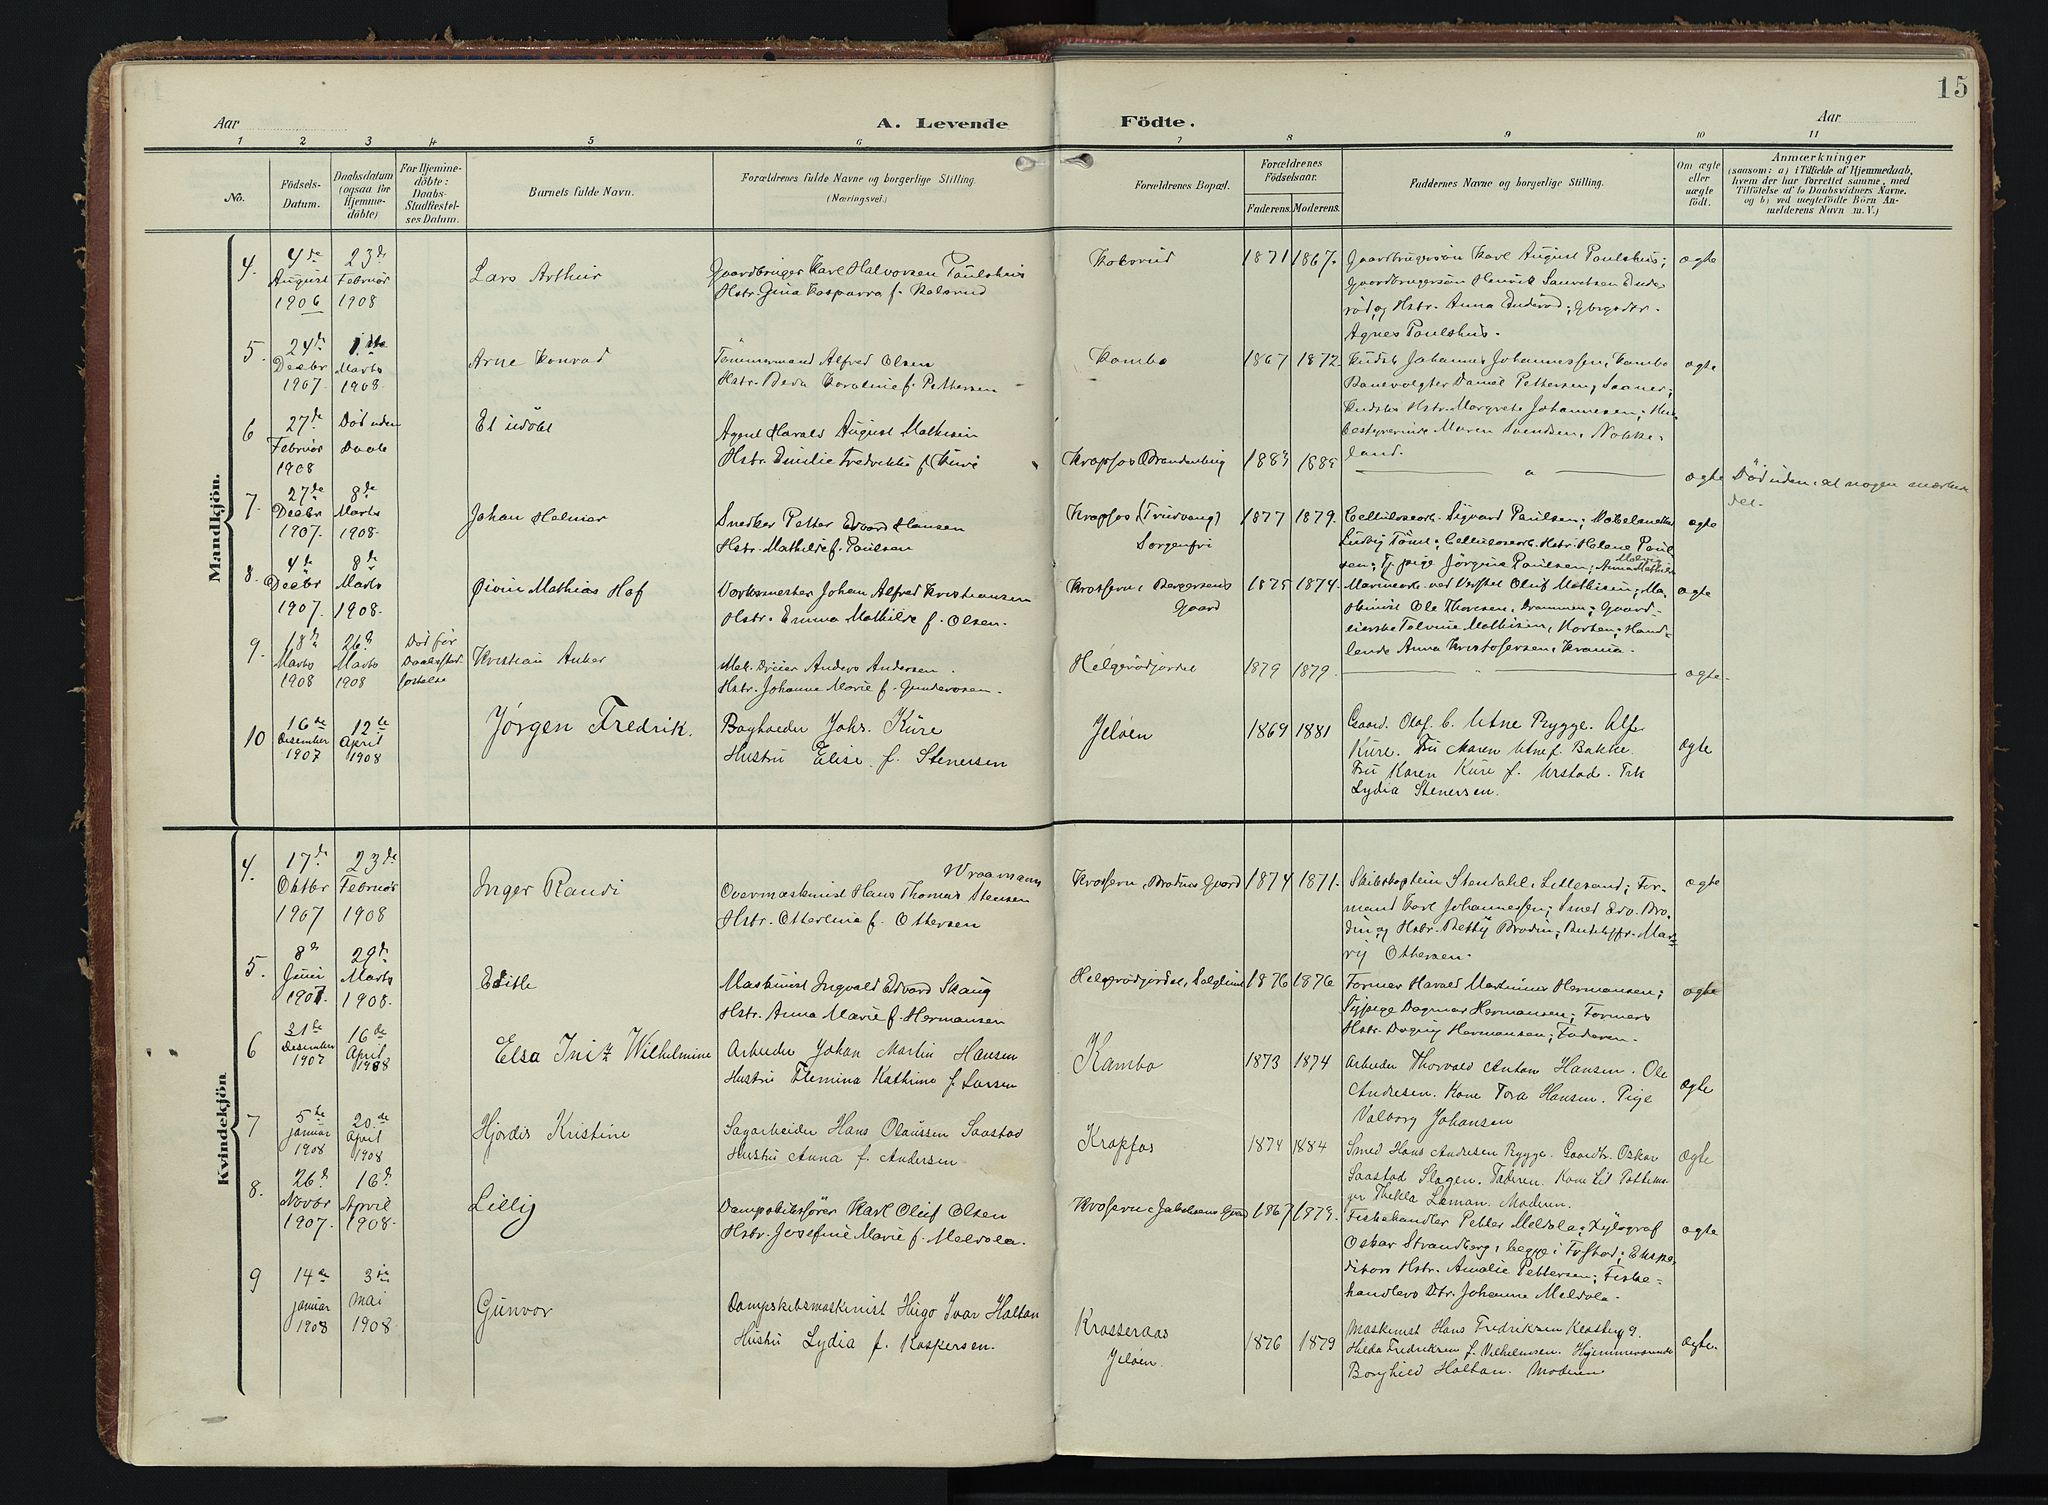 15
Aar
A. Levende
Födte.
Aar
1 2 3 4 5 6 7 8 9 10 11
No.
Födsels-
Datum.
Daabsdatum
(ogsaa for
Hjemme-
döbte)
For Hjemme-
döbte:
Daabs-
Stadfæstel-
ses Datum.
Barnets fulde Navn.
Forældrenes fulde Navne og borgerlige Stilling.
(Næringsvei.)
Forældrenes Bopæl.
Forældrenes
Födselsaar.
Faderens. Moderens.
Faddernes Navne og borgerlige Stilling.
Om ægte
eller
uægte
födt.
Anmærkninger
(saasom: a) i Tilfælde af Hjemmedaab,
hvem der har forrettet samme, med
Tilföielse af to Daabsvidners Navne,
og b) ved uægtefödte Börn An-
melderens Navn m. V.)
Mandkjön.
4.
4de
August
1906
23de
Februar
1908
Lars Arthur
Gaardbruger Karl Halvorsen Paulshus
Hstr. Gina Kasparra f. Kolsrud
Kolsrud
1871 1867.
Gaardbrugersøn Karl August Paulshus;
Gaardbrugersøn Henrik Lauretsen Ende-
rød, og Hstr. Anna Enderød;
Agnes Paulshus.
ægte
5.
24de
Decbr
1907
1ste
Marts
1908.
Arne Konrad
Tømmermand Alfred Olsen
Hstr. Beda Karoline f. Pettersen
Kambo
1867 1872.
Kudsk Johannes Johannessen, Kambo
Banevogter Daniel Pettersen, Saaner;
Kudsks Hstr. Margrete Johannesen; Hus-
bestyrerinde Maren Svendsen, Nokke-
land.
ægte
6
27de
Februar
1908
Død uden
Daab
Et udøbt
Agent Harald August Mathisen
Hstr. Emilie Fredrikke f. Kure
Krapfos Brandenbug
1883 1885
ægte
Død uden, at nogen mærkede
det.
7.
27de
Decbr
1907
8de
Marts
1908.
Johan Helmer
Snedker Petter Edvard Hansen
Hstr. Mathilde f. Paulsen
Krapfos (Trudvang)
Sorgenfri
1877 1879.
Cellulosearb. Sigvard Paulsen; Møbelsnekker
Ludvig Tømt; Cellulosearb. Hstr. Helene Paul-
sen; Tj. pige Jørgine Paulsen; Anna Mathisen
ægte
8.
4de
Decbr
1907.
8de
Marts
1908.
Øivin Mathias Hof
Værksmester Johan Alfred Kristiansen
Hstr. Emma Mathilde f. Olsen.
Krossern, Bergersens
Gaard
1875 1874.
Marinearb. ved Verftet Oluf Mathisen; Ma-
skinist Ole Thoresen, Drammen; Gaard-
eierske Talvine Mathisen, Horten; Hand-
lende Anna Kristofersen, Krania.
ægte
9.
18de
Marts
1908
26de
Marts
1908
Død før
Daabsstad-
fæstelse
Kristian Anker
Mek. Dreier Anders Andersen.
Hstr. Johanne Marie f. Gundersen.
Helgerødjordet
1879 1879.
ægte.
10
16de
Desember
1907
12te
April
1908
Jørgen Fredrik.
Bogholder Johs. Küre
Hustru Elise f. Stenersen
Jeløen
1869 1881
Gaard. Olaf C. Utne Rygge. Alf.
Küre. Fru Maren Utne f. Bakke.
Fru Karen Küre f. Urstad. Frk
Lydia Stenersen.
ægte
Kvindekjön
4.
17de
Oktbr
1907
23de
Februar
1908
Inger Randi
Wraamann
Overmaskinist Hans Thomas Stensen
Hstr. Otterline f. Ottersen
Krossern, Brodins Gaard
1874 1871.
Skibskaptein Stendahl, Lillesand; For-
mand Karl Johannessen; Smed Edv. Bro-
din, og Hstr. Betty Brodin; Butikjfr. Mar-
ry Ottersen.
ægte
5.
8de
Juni
1907.
29de
Marts
1908.
Edith
Maskinist Ingvald Edvard Skaug
Hstr. Anna Marie f. Hermansen
Helgerødjordet, Solglimt
1876 1876
Former Harald Martinius Hermansen;
Sypige Dagmar Hermansen; Formers
Hstr. Dagny Hermansen; Faderen.
ægte
6
31te
Desember
1907
16de
April
1908
Elsa Wilhelmine
Arbeider Johan Martin Hansen
Hustru Flemina Kathrine f. Larsen
Kambo
1873 1874
Arbeider Thorvald Anton Hansen. Ole
Andresen. Kone Tora Hansen. Pige
Valborg Johansen
ægte
7
5te
januar
1908
20de
April
1908
Hjördis Kristine
Sagarbeider Hans Olaussen Saastad
Hustru Anna f. Andersen.
Krapfos
1874 1884
Smed Hans Andresen Rygge. Gaardbr. Oskar
Saastad Slagen. Faderen. Kone
Thekla Laman. Moderen.
ægte
8.
26de
Novbr
1907.
16de
April
1908.
Lilly
Dampskibsfører Karl Oluf Olsen
Hstr. Josefine Marie f. Meldola.
Krossern, Jakobsens Gaard
1867 1879.
Fiskehandler Petter Meldola; Xylograf
Oskar Strandberg, begge i Frstad; Ekspe-
ditørs Hstr. Amalie Pettersen; Fiske-
handlers Dtr. Johanne Meldola.
ægte
9
14de
januar
1908
3die
mai
1908
Gunvor
Dampskibsmaskinist Hugo Ivar Holtan
Hustru Lydia f. Kaspersen.
Krasseraas
Jeløen.
1876 1879
Maskinist Hans Fredriksen
Hilda Fredriksen f. Vilhelmsen. Hjemmeværende
Borghild Holtan. Moderen
ægte.